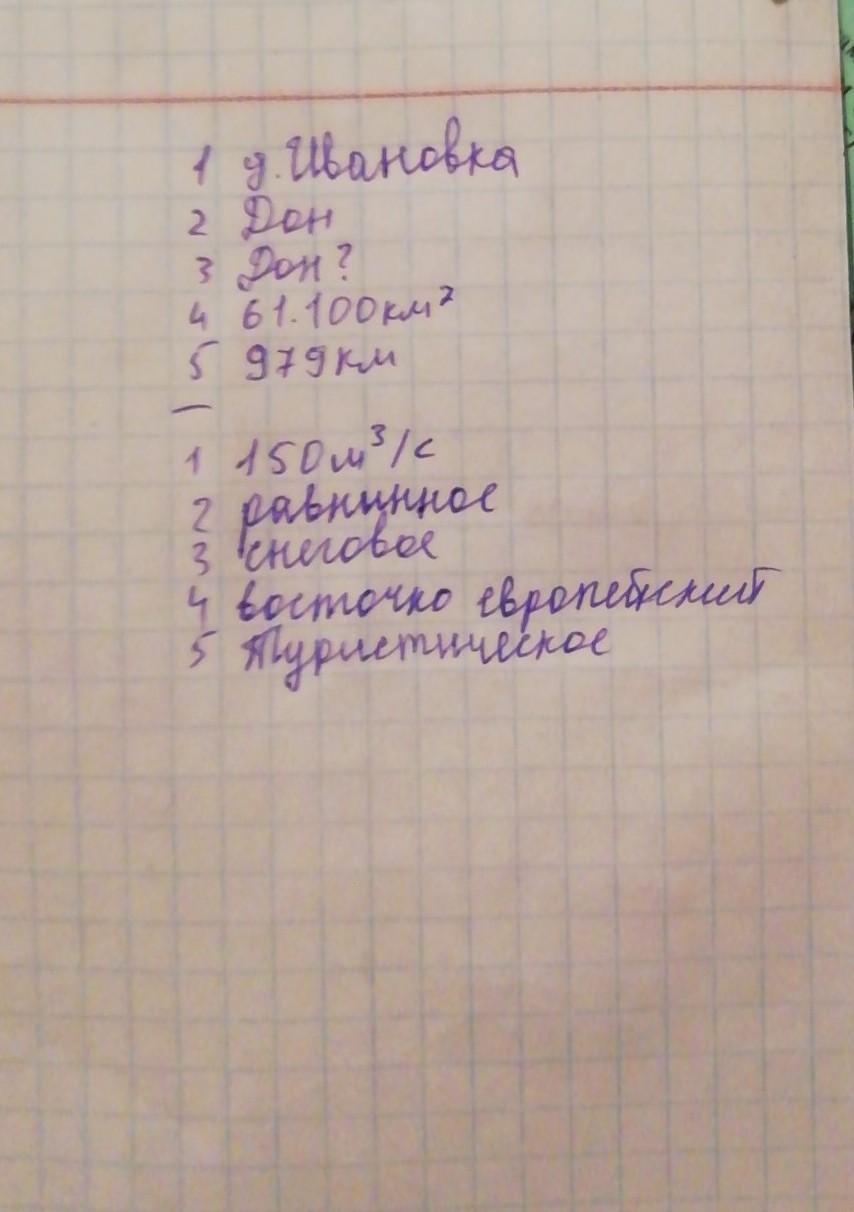 1 д. Ивановка
2 Дон
3 Дон?
4 61.100км²
5 979км
—
1 150м³/с
2 равнинное
3 снеговое
4 восточно европейский
5 Туристическое